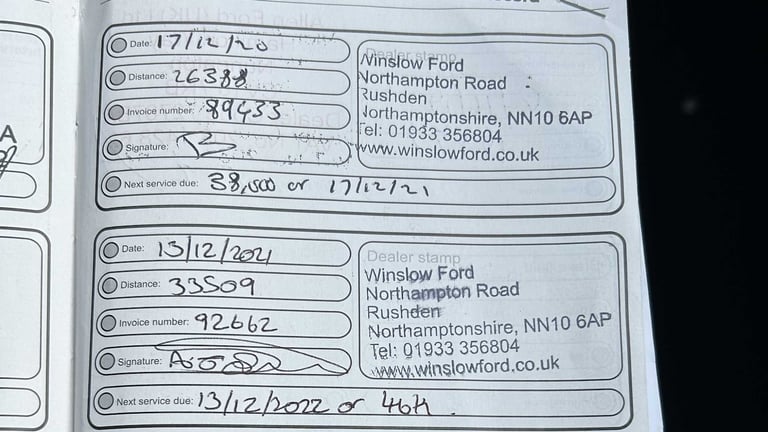 Date: 17/12/20
Distance: 26388
Invoice number: 89433
Signature:
Next service due: 38,000 or 17/12/21
Dealer stamp
Winslow Ford
Northampton Road
Rushden
Northamptonshire, NN10 6AP
Tel: 01933 356804
www.winslowford.co.uk
Date: 13/12/2021
Distance: 33509
Invoice number: 92662
Signature:
Next service due: 13/12/2022 or 46K.
Dealer stamp
Winslow Ford
Northampton Road
Rushden
Northamptonshire, NN10 6AP
Tel: 01933 356804
www.winslowford.co.uk
A